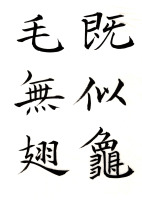 既似龜
毛無翅